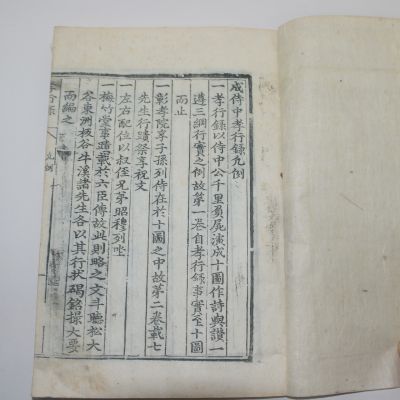 成侍中孝行錄凡例
一孝行錄以侍中公千里負尸演成十圖作詩與讚一
遵三綱行實之例故第一卷自孝行錄事實至十圖
而止
一彰孝院享子孫列侍在於十圖之中故第二卷載七
先生行蹟祭享祝文
一左右配位以叔侄兄弟昭穆列坐
一梅竹堂事蹟載於六臣傳故此則略之文斗聽松大
谷東洲板谷牛溪諸先生各以其行狀碣銘撮大要
而編之
凡例